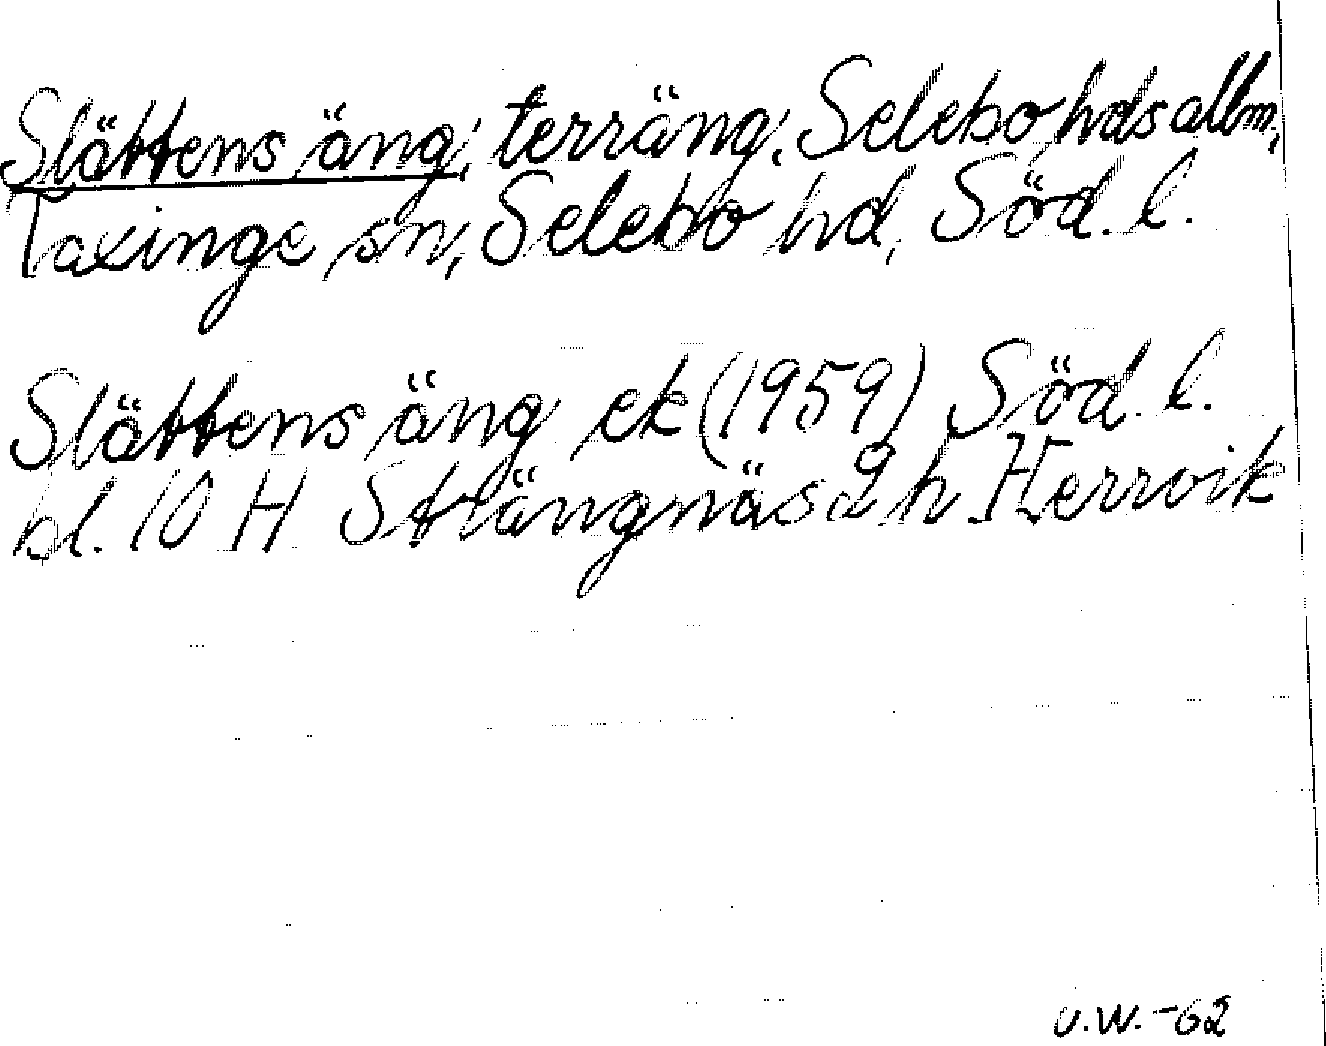 Slättens äng, terräng, Selebo hds allm,
Taxinge sn, Selebo hd, Söd. l.
Slättens äng ek (1959) Söd. l.
bl. 10 H Strängnäs 2 h Herrvik
U.W.-62